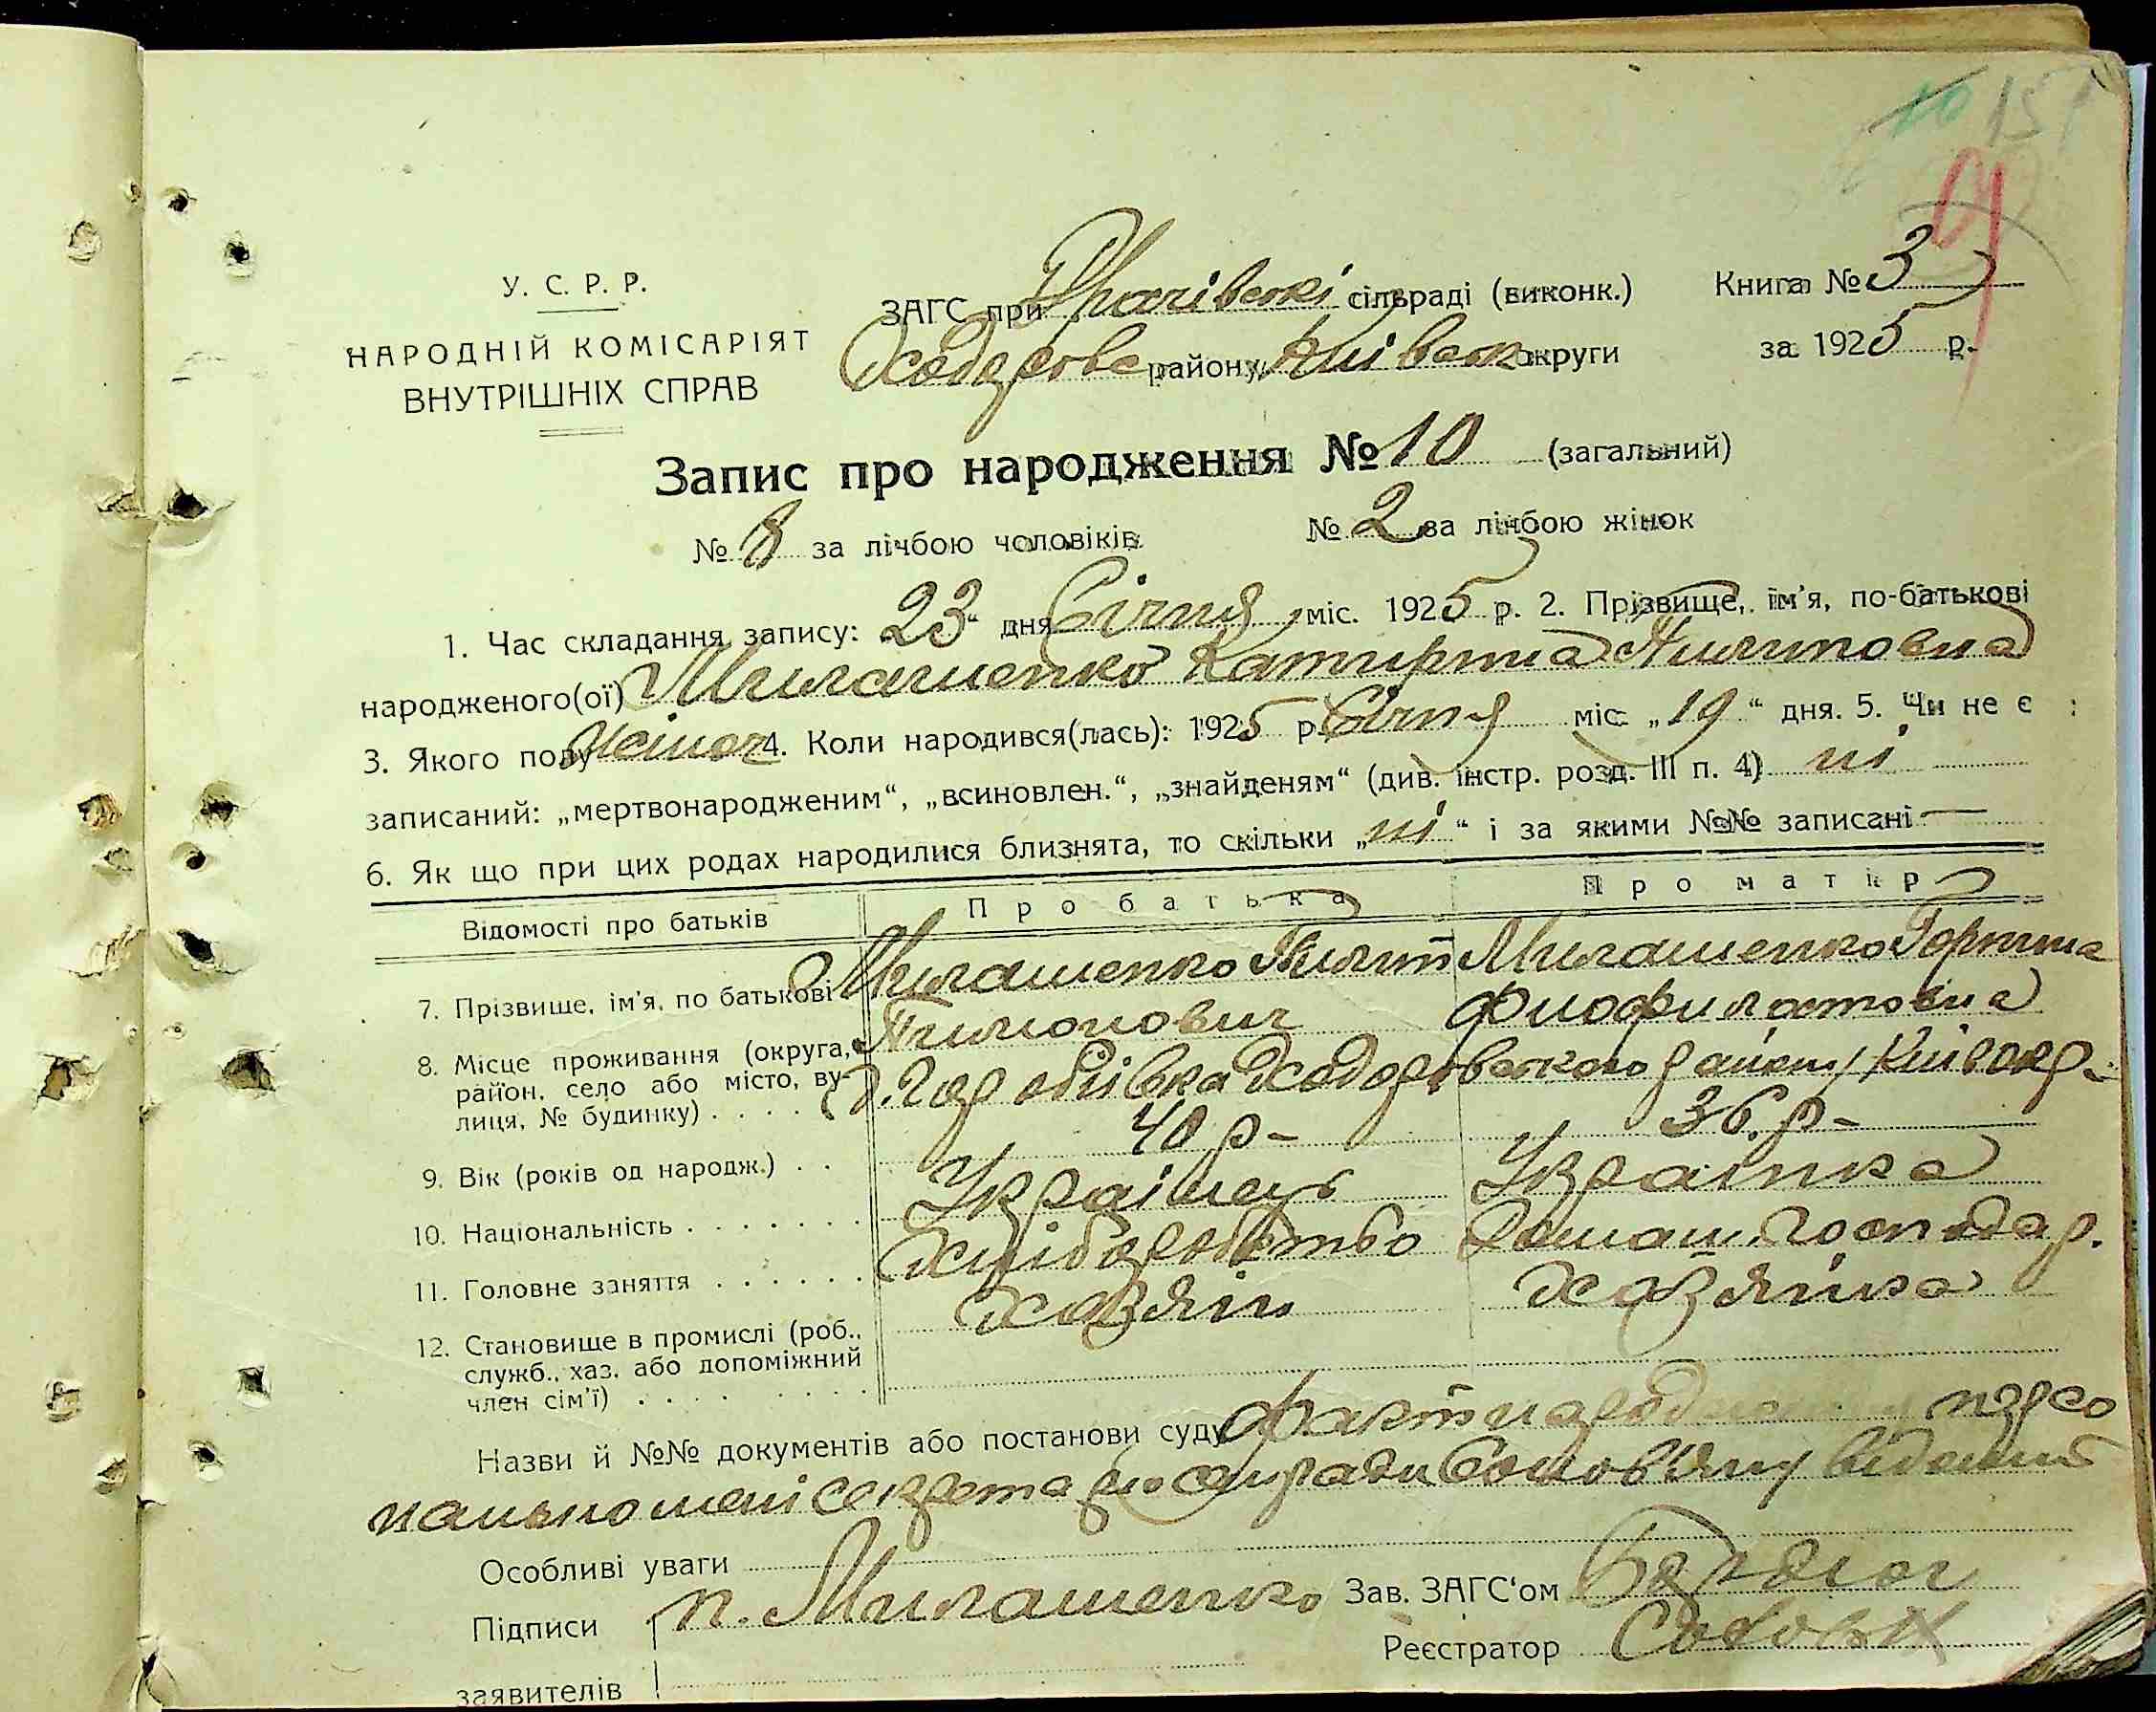 10 151
У. С. Р. Р.
НАРОДНІЙ КОМІСАРІЯТ
ВНУТРІШНІХ СПРАВ
ЗАГС при сільраді (виконк.)
району Київськ округи
Книга № 3
за 1925 р.
Запис про народження № 10 (загальний)
№ 8 за лічбою чоловіків № 2 за лічбою жінок
1. Час складання запису: 23 " дня Січня міс. 1925 р. 2. Прізвище, ім'я, по-батькові
народженого(ої) Милашенко Катирина
3. Якого полу Жіноч 4. Коли народився(лась): 1925 р. Січня міс. „19 “ дня. 5. Чи не є
записаний: „мертвонародженим“, „всиновлен.“, „знайденям“ (див. інстр. розд. III п. 4) ні
6. Як що при цих родах народилися близнята, то скільки „ ні “ і за якими №№ записані —
Відомості про батьків Про батька Про матір
7. Прізвище, ім'я, по батькові Милашенко Пилип Милашенко Горпина
8. Місце проживання (округа, район, село або місто, вулиця, № будинку) . . . . Ходоровського району Київ окр.
9. Вік (років од народж.) . . 40 р- 36. р-
10. Національність . . . . . . . Українець Українка
11. Головне заняття . . . . . . Хліборобство Домашн. господар.
12. Становище в промислі (роб., служб., хаз. або допоміжний член сім'ї) . . . . . . . . . хазяїн хазяйка
Назви й №№ документів або постанови суду Факт народження персо
нально мені секретарю сільради відомий
Особливі уваги
Підписи п. Милашенко Зав. ЗАГС‘ом
Реєстратор
заявителів